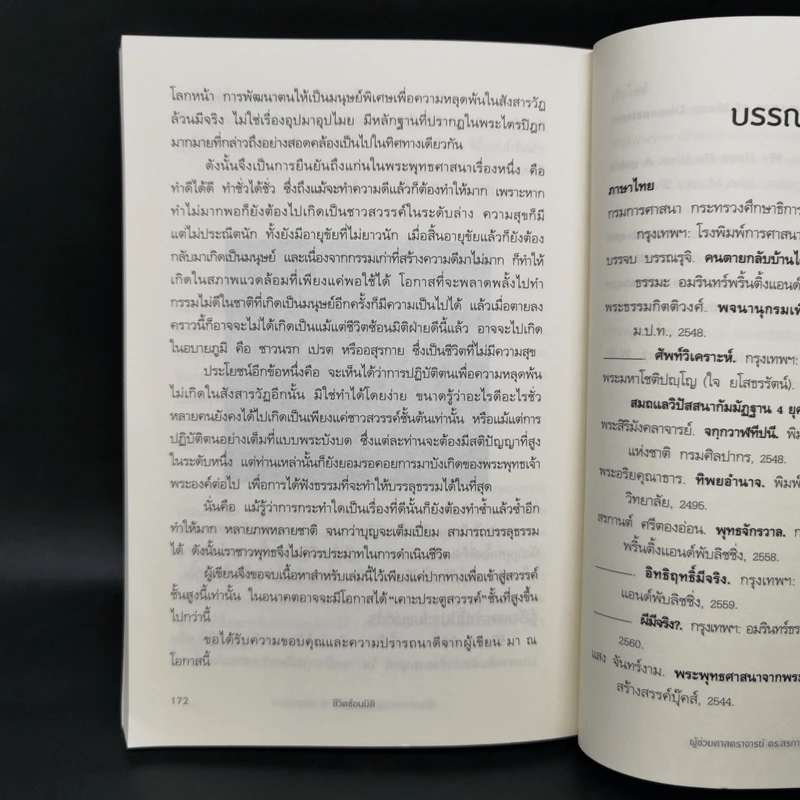 โลกหน้า การพัฒนาตนให้เป็นมนุษย์พิเศษเพื่อความหลุดพ้นในสังสารวัฏ
ล้วนมีจริง ไม่ใช่เรื่องอุปมาอุปไมย มีหลักฐานที่ปรากฏในพระไตรปิฎก
มากมายที่กล่าวถึงอย่างสอดคล้องเป็นไปในทิศทางเดียวกัน
ดังนั้นจึงเป็นการยืนยันถึงแก่นในพระพุทธศาสนาเรื่องหนึ่ง คือ
ทำดีได้ดี ทำชั่วได้ชั่ว ซึ่งถึงแม้จะทำความดีแล้วก็ต้องทำให้มาก เพราะหาก
ทำไม่มากพอก็ยังต้องไปเกิดเป็นชาวสวรรค์ในระดับล่าง ความสุขก็มี
แต่ไม่ประณีตนัก ทั้งยังมีอายุขัยที่ไม่ยาวนัก เมื่อสิ้นอายุขัยแล้วก็ยังต้อง
กลับมาเกิดเป็นมนุษย์ และเนื่องจากกรรมเก่าที่สร้างความดีมาไม่มาก ก็ทำให้
เกิดในสภาพแวดล้อมที่เพียงแค่พอใช้ได้ โอกาสที่จะพลาดพลั้งไปทำ
กรรมไม่ดีในชาติที่เกิดเป็นมนุษย์อีกครั้งก็มีความเป็นไปได้ แล้วเมื่อตายลง
คราวนี้ก็อาจจะไม่ได้เกิดเป็นแม้แต่ชีวิตซ้อนมิติฝ่ายดีนี้แล้ว อาจจะไปเกิด
ในอบายภูมิ คือ ชาวนรก เปรต หรืออสุรกาย ซึ่งเป็นชีวิตที่ไม่มีความสุข
ประโยชน์อีกข้อหนึ่งคือ จะเห็นได้ว่าการปฏิบัติตนเพื่อความหลุดพ้น
ไม่เกิดในสังสารวัฏอีกนั้น มิใช่ทำได้โดยง่าย ขนาดรู้ว่าอะไรดีอะไรชั่ว
หลายคนยังคงได้ไปเกิดเป็นเพียงแค่ชาวสวรรค์ชั้นต้นเท่านั้น หรือแม้แต่การ
ปฏิบัติตนอย่างเต็มที่แบบพระบังบด ซึ่งแต่ละท่านจะต้องมีสติปัญญาที่สูง
ในระดับหนึ่ง แต่ท่านเหล่านั้นก็ยังยอมรอคอยการมาบังเกิดของพระพุทธเจ้า
พระองค์ต่อไป เพื่อการได้ฟังธรรมที่จะทำให้บรรลุธรรมได้ในที่สุด
นั่นคือ แม้รู้ว่าการกระทำใดเป็นเรื่องที่ดีนั้นก็ยังต้องทำซ้ำแล้วซ้ำอีก
ทำให้มาก หลายภพหลายชาติ จนกว่าบุญจะเต็มเปี่ยม สามารถบรรลุธรรม
ได้ ดังนั้นเราชาวพุทธจึงไม่ควรประมาทในการดำเนินชีวิต
ผู้เขียนจึงขอจบเนื้อหาสำหรับเล่มนี้ไว้เพียงแค่ปากทางเพื่อเข้าสู่สวรรค์
ชั้นสูงนี้เท่านั้น ในอนาคตอาจจะมีโอกาสได้"เคาะประตูสวรรค์"ชั้นที่สูงขึ้น
ไปกว่านี้
ขอได้รับความขอบคุณและความปรารถนาดีจากผู้เขียน มา ณ
โอกาสนี้
172
ชีวิตซ้อนมิติ
บรรณ
ภาษาไทย
กรมการศาสนา กระทรวงศึกษาธิการ
กรุงเทพฯ: โรงพิมพ์การศาสนา
บรรจบ บรรณรุจิ. คนตายกลับบ้านได้
ธรรมะ อมรินทร์พริ้นติ้งแอนด์
พระธรรมกิตติวงศ์. พจนานุกรมเพื่
ม.ป.ท., 2548.
ศัพท์วิเคราะห์. กรุงเทพฯ:
พระมหาโชติปญฺโญ (ใจ ยโสธรรัตน์).
สมถแลวิปัสสนากัมมัฏฐาน 4 ยุค
พระสิริมังคลาจารย์. จกฺกวาฬทีปนี. พิม
แห่งชาติ กรมศิลปากร, 2548.
พระอริยคุณาธาร. ทิพยอำนาจ. พิมพ์
วิทยาลัย, 2495.
สรกานต์ ศรีตองอ่อน. พุทธจักรวาล. ก
พริ้นติ้งแอนด์พับลิชชิ่ง, 2558.
อิทธิฤทธิ์มีจริง. กรุงเทพฯ:
แอนด์พับลิชชิ่ง, 2559.
ผีมีจริง?. กรุงเทพฯ: อมรินทร์ธร
2560.
แสง จันทร์งาม. พระพุทธศาสนาจากพระ
สร้างสรรค์บุ๊คส์, 2544.
ผู้ช่วยศาสตราจารย์ ดร.สรกา